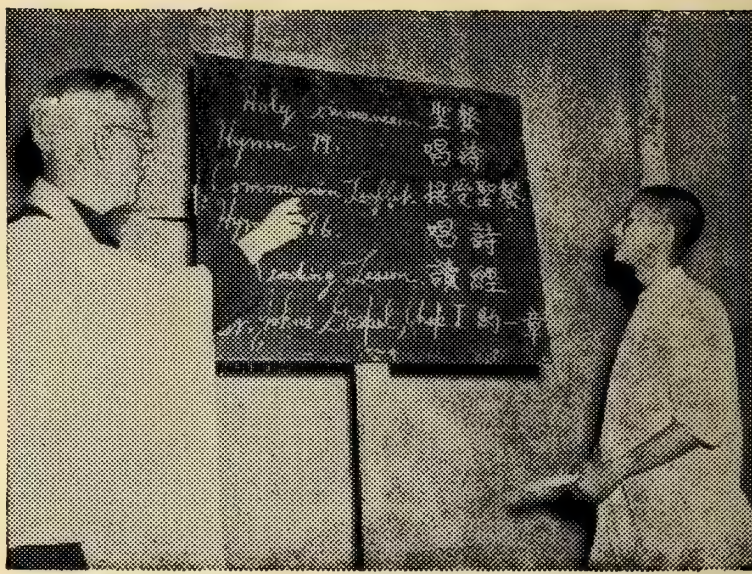 Holy Communion 聖餐
Hymn 唱詩
Communion 聖餐
Hymn 96. 唱詩
Reading Lesson 讀經
Johns Gospel, Chap I 一章